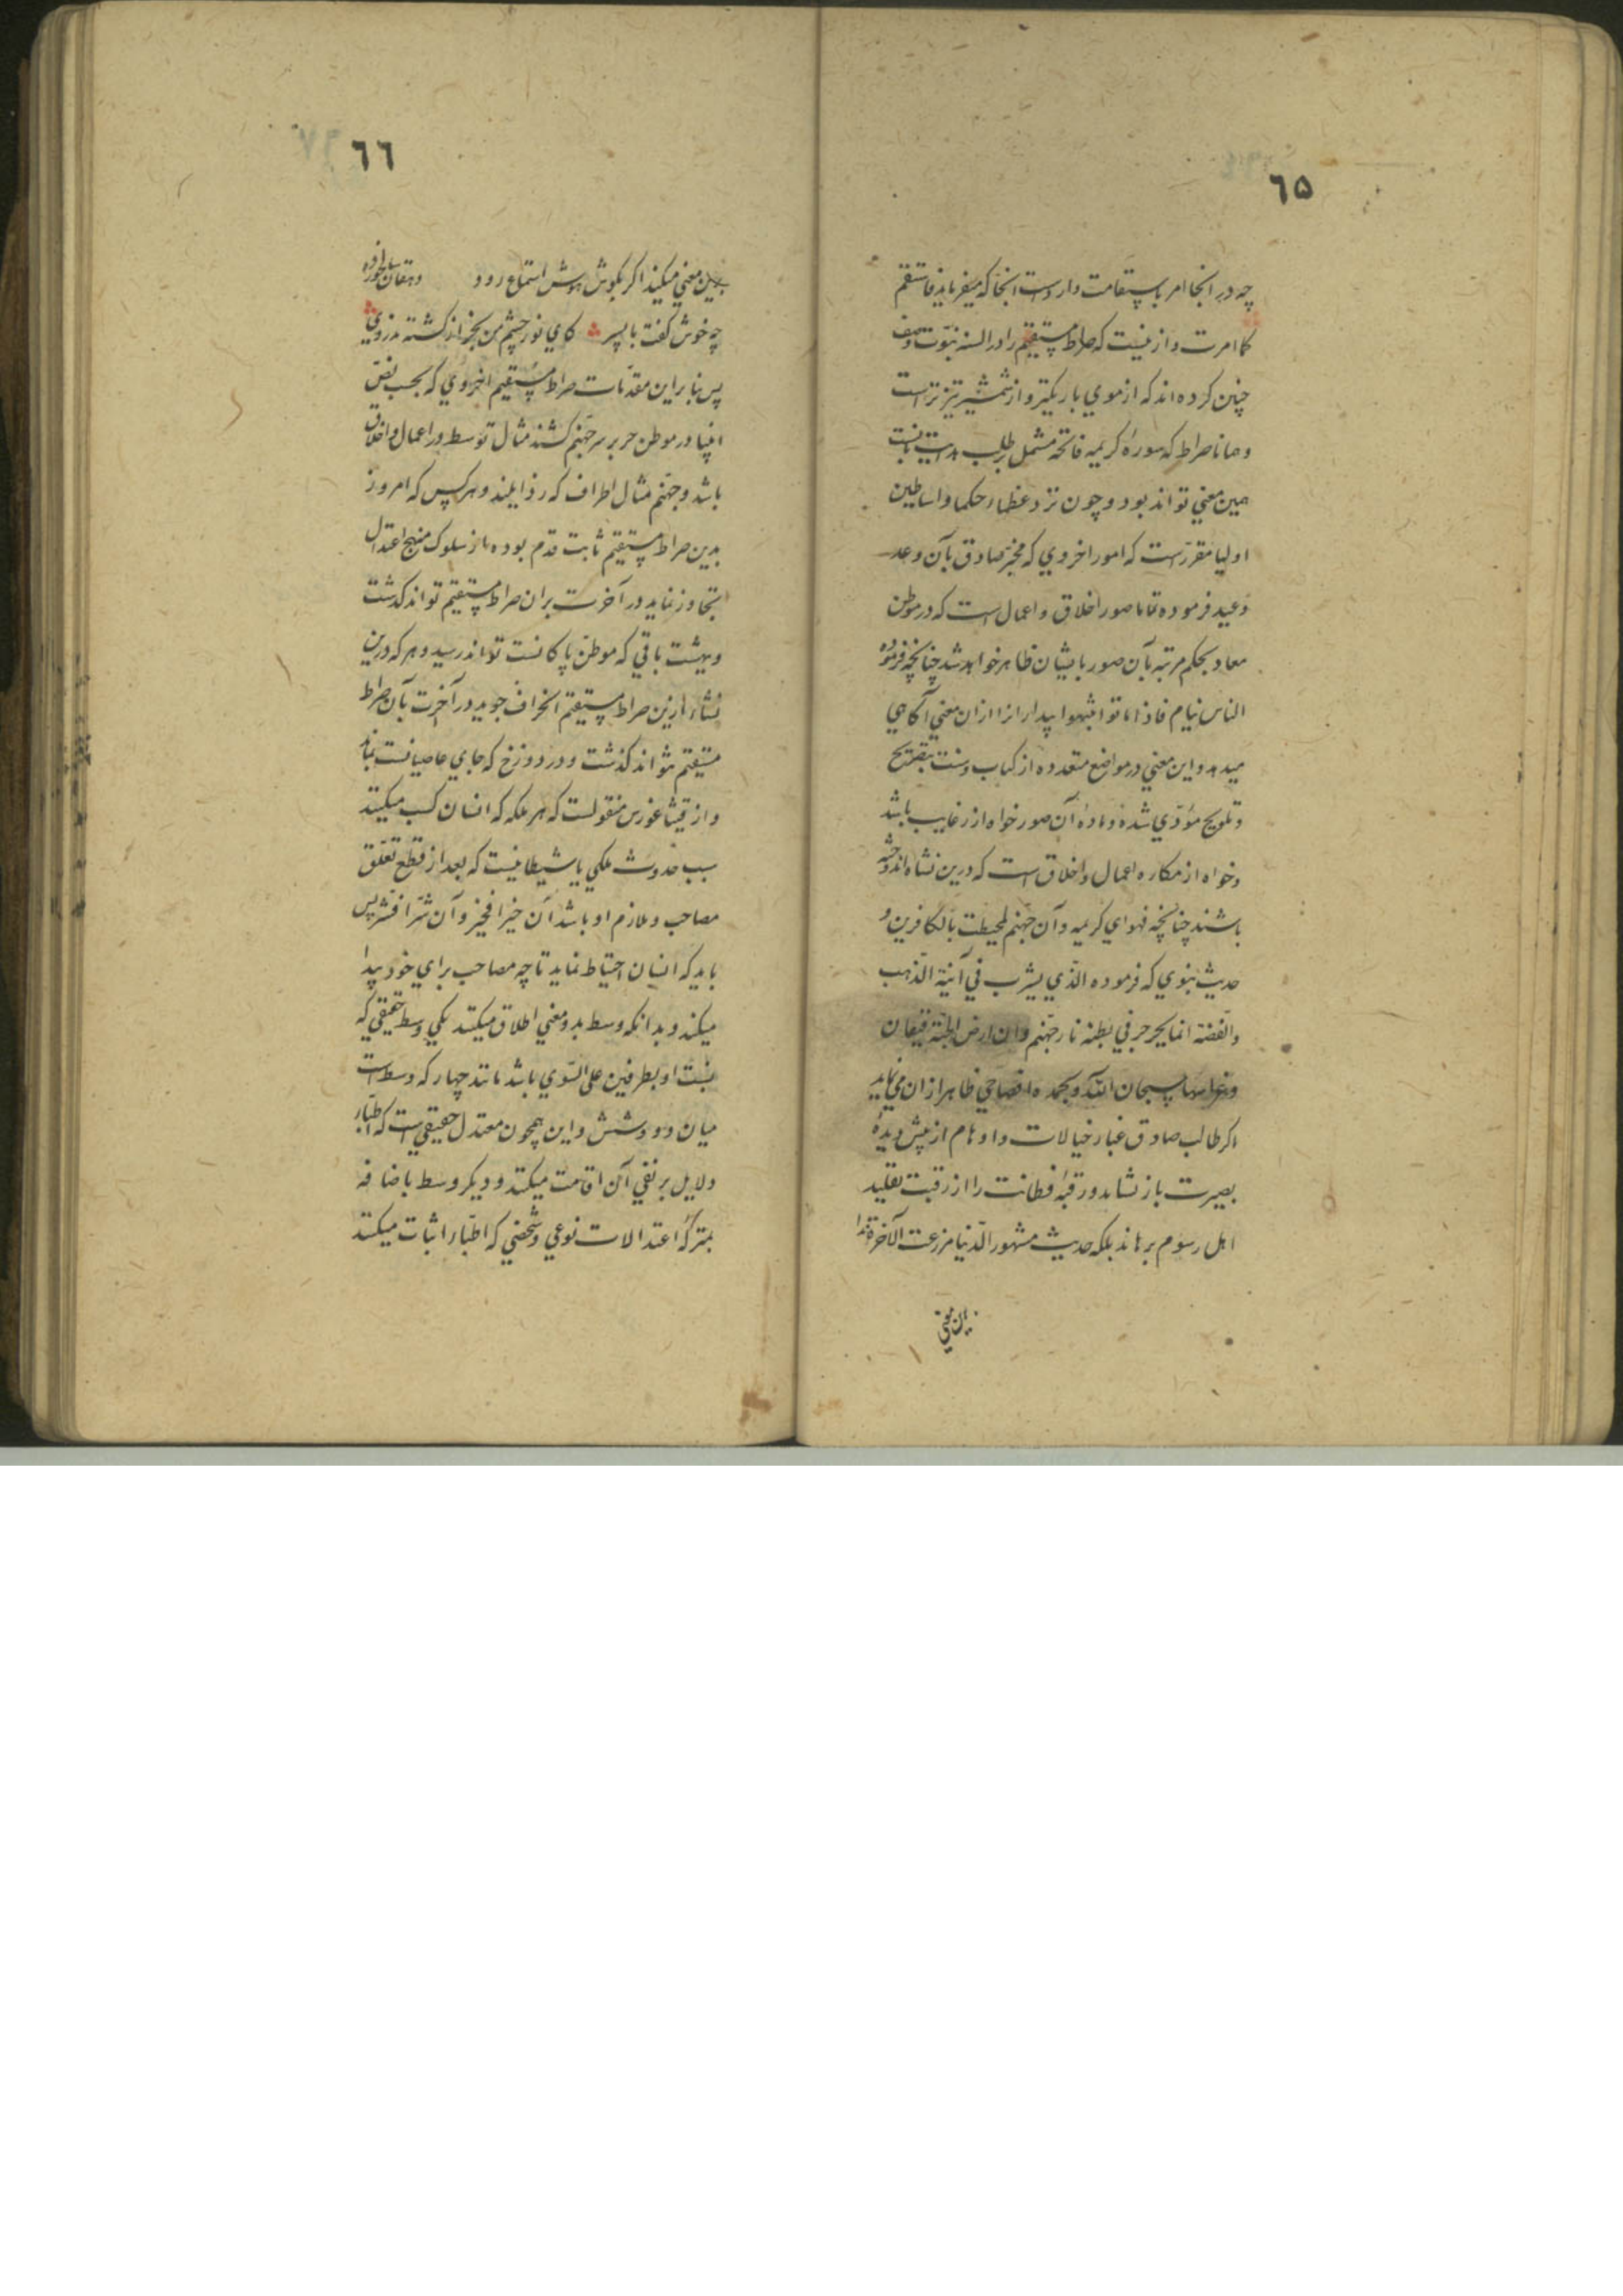 ٦٥
چه در انجا امر باستقامت وارد است انجا که میفرماید فاستقم
کما امرت و ازینست که صراط مستقیم را در السنه نبوت وصف
چنین کرده اند که از موی باریکتر و از شمشیر تیزتر است
و همانا صراط که سوره کریمه فاتحه مشتمل بر طلب هدایت بانست
همین معنی تواند بود و چون نزد عظماء حکما و اساطین
اولیا مقررست که امور اخروی که مخبر صادق بآن وعد
وعید فرموده تماما صور اخلاق و اعمال است که در موطن
معاد بحکم مرتبه بآن صور بایشان ظاهر خواهد شد چنانچه فرموده
الناس نیام فاذا ماتوا انتبهوا بیداران را ازان معنی آگاهی
میدهد و این معنی در مواضع متعدده از کتاب و سنت بتصریح
و تلویح مؤدی شده و ماده آن صور خواه از رغایب باشد
و خواه از مکاره اعمال و اخلاق است که درین نشاه اندوخته
باشند چنانچه فحوای کریمه وآن جهنم لمحیطت بالکافرین و
حدیث نبوی که فرموده الذی یشرب فی آنیة الذهب
والفضة انما یجرجر فی بطنه نار جهنم وان ارض الجنة قیعان
وغراسها سبحان الله وبحمده افصاحی ظاهر ازان می نماید
اکر طالب صادق غبار خیالات و اوهام از پیش دیده
بصیرت باز نشاید و رقبه فطانت را از رقبت تقلید
اهل رسوم برهاند بلکه حدیث مشهور الدنیا مزرعت الآخرة ندا
بدین معنی
٦٦
بدین معنی میکند اکر بکوش هوش استماع رود دهقان سالخورده
چه خوش کفت با پسر کای نور چشم من بجز از کشته ندروی
پس بنابراین مقدمات صراط مستقیم اخروی که بحسب نص
انبیا در موطن حشر بر سر جهنم کشند مثال توسط در اعمال و اخلاق
باشد و جهنم مثال اطراف که رذایلند و هر کس که امروز
بدین صراط مستقیم ثابت قدم بوده از سلوک منهج اعتدال
تجاوز ننماید در آخرت بران صراط مستقیم تواند کذشت
و ببهشت باقی که موطن پاکانست تواند رسید و هر که درین
نشاء ازین صراط مستقیم انحراف جوید در آخرت بآن صراط
مستقیم نتواند کذشت و در دوزخ که جای عاصیانست بماند
و از فیثاغورس منقولست که هر ملکه که انسان کسب میکند
سبب حدوث ملکی یا شیطانیست که بعد از قطع تعلق
مصاحب و ملازم او باشد ان خیرا فخیر و ان شرا فشر پس
باید که انسان احتیاط نماید تا چه مصاحب برای خود پیدا
میکند و بدانکه وسط بدو معنی اطلاق میکنند یکی وسط حقیقی که
نسبت او بطرفین علی السوی باشد مانند چهار که وسط است
میان دو و شش و این همچون معتدل حقیقی است که اطباء
دلایل بر نفی آن اقامت میکنند و دیکر وسط باضافه
بمنزله اعتدالات نوعی و شخصی که اطباء اثبات میکنند